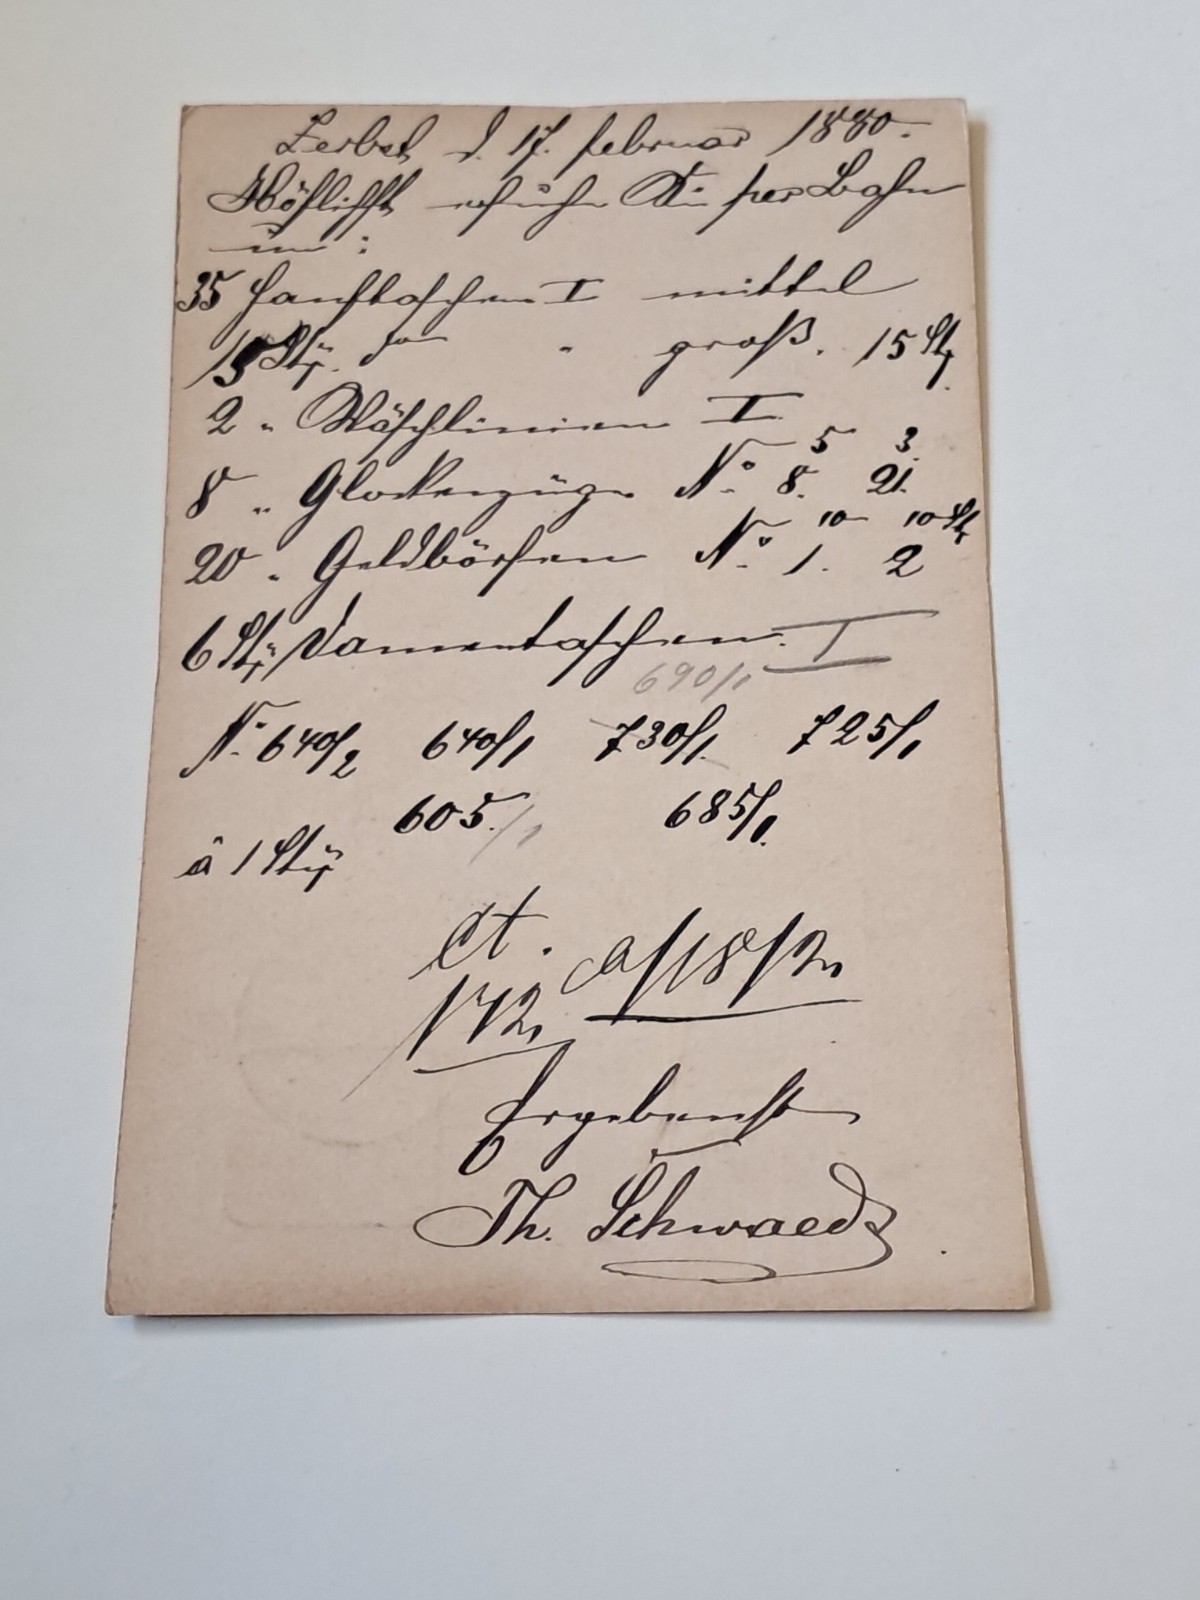 Zerbst d. 17. Februar 1880.
Höflichst ersuche Sie per Bahn
um:
35 Hanftaschen I mittel
15 Stǖ. do " groß. 15 Stǖ.
2 " Wäschlinien I.
8 " Glockenzüge No. 5/8. 3/21.
20 " Geldbörsen No. 10/1. 10 St/2
6 Stǖ Damentaschen. I
690/1
No. 640/2 640/1 730/1. 725/1
605./1 685/1.
á 1 Stǖ
172 a/18/2
Ergebenst
Th. Schwaedt